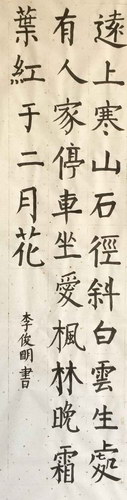 遠上寒山石徑斜白雲生處
有人家停車坐愛楓林晚霜
葉紅于二月花
李俊明書